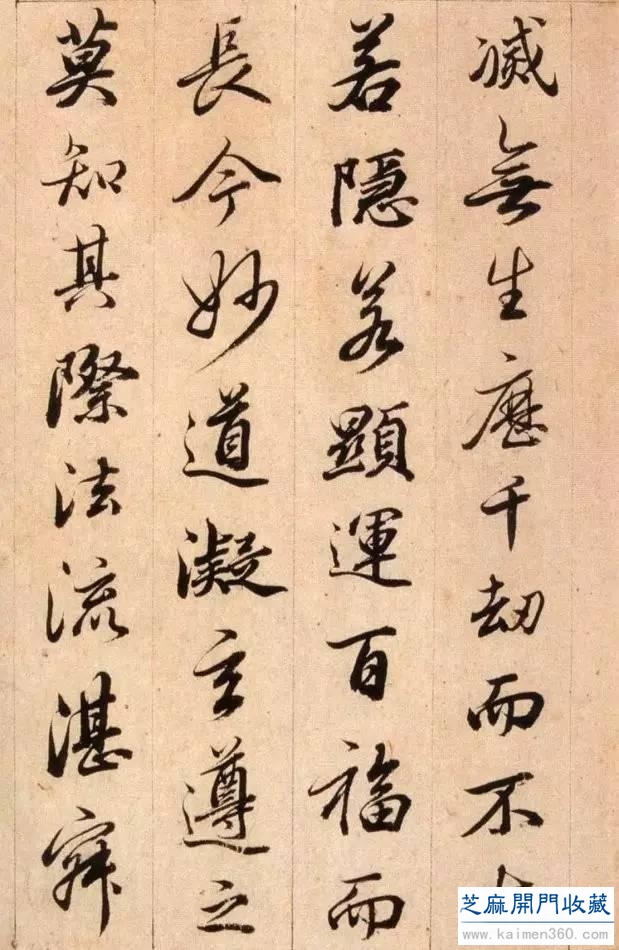 滅無生歷千劫而不
若隱若顯運百福而
長今妙道凝玄遵之
莫知其際法流湛寂
芝麻開門收藏
www.kaimen360.com